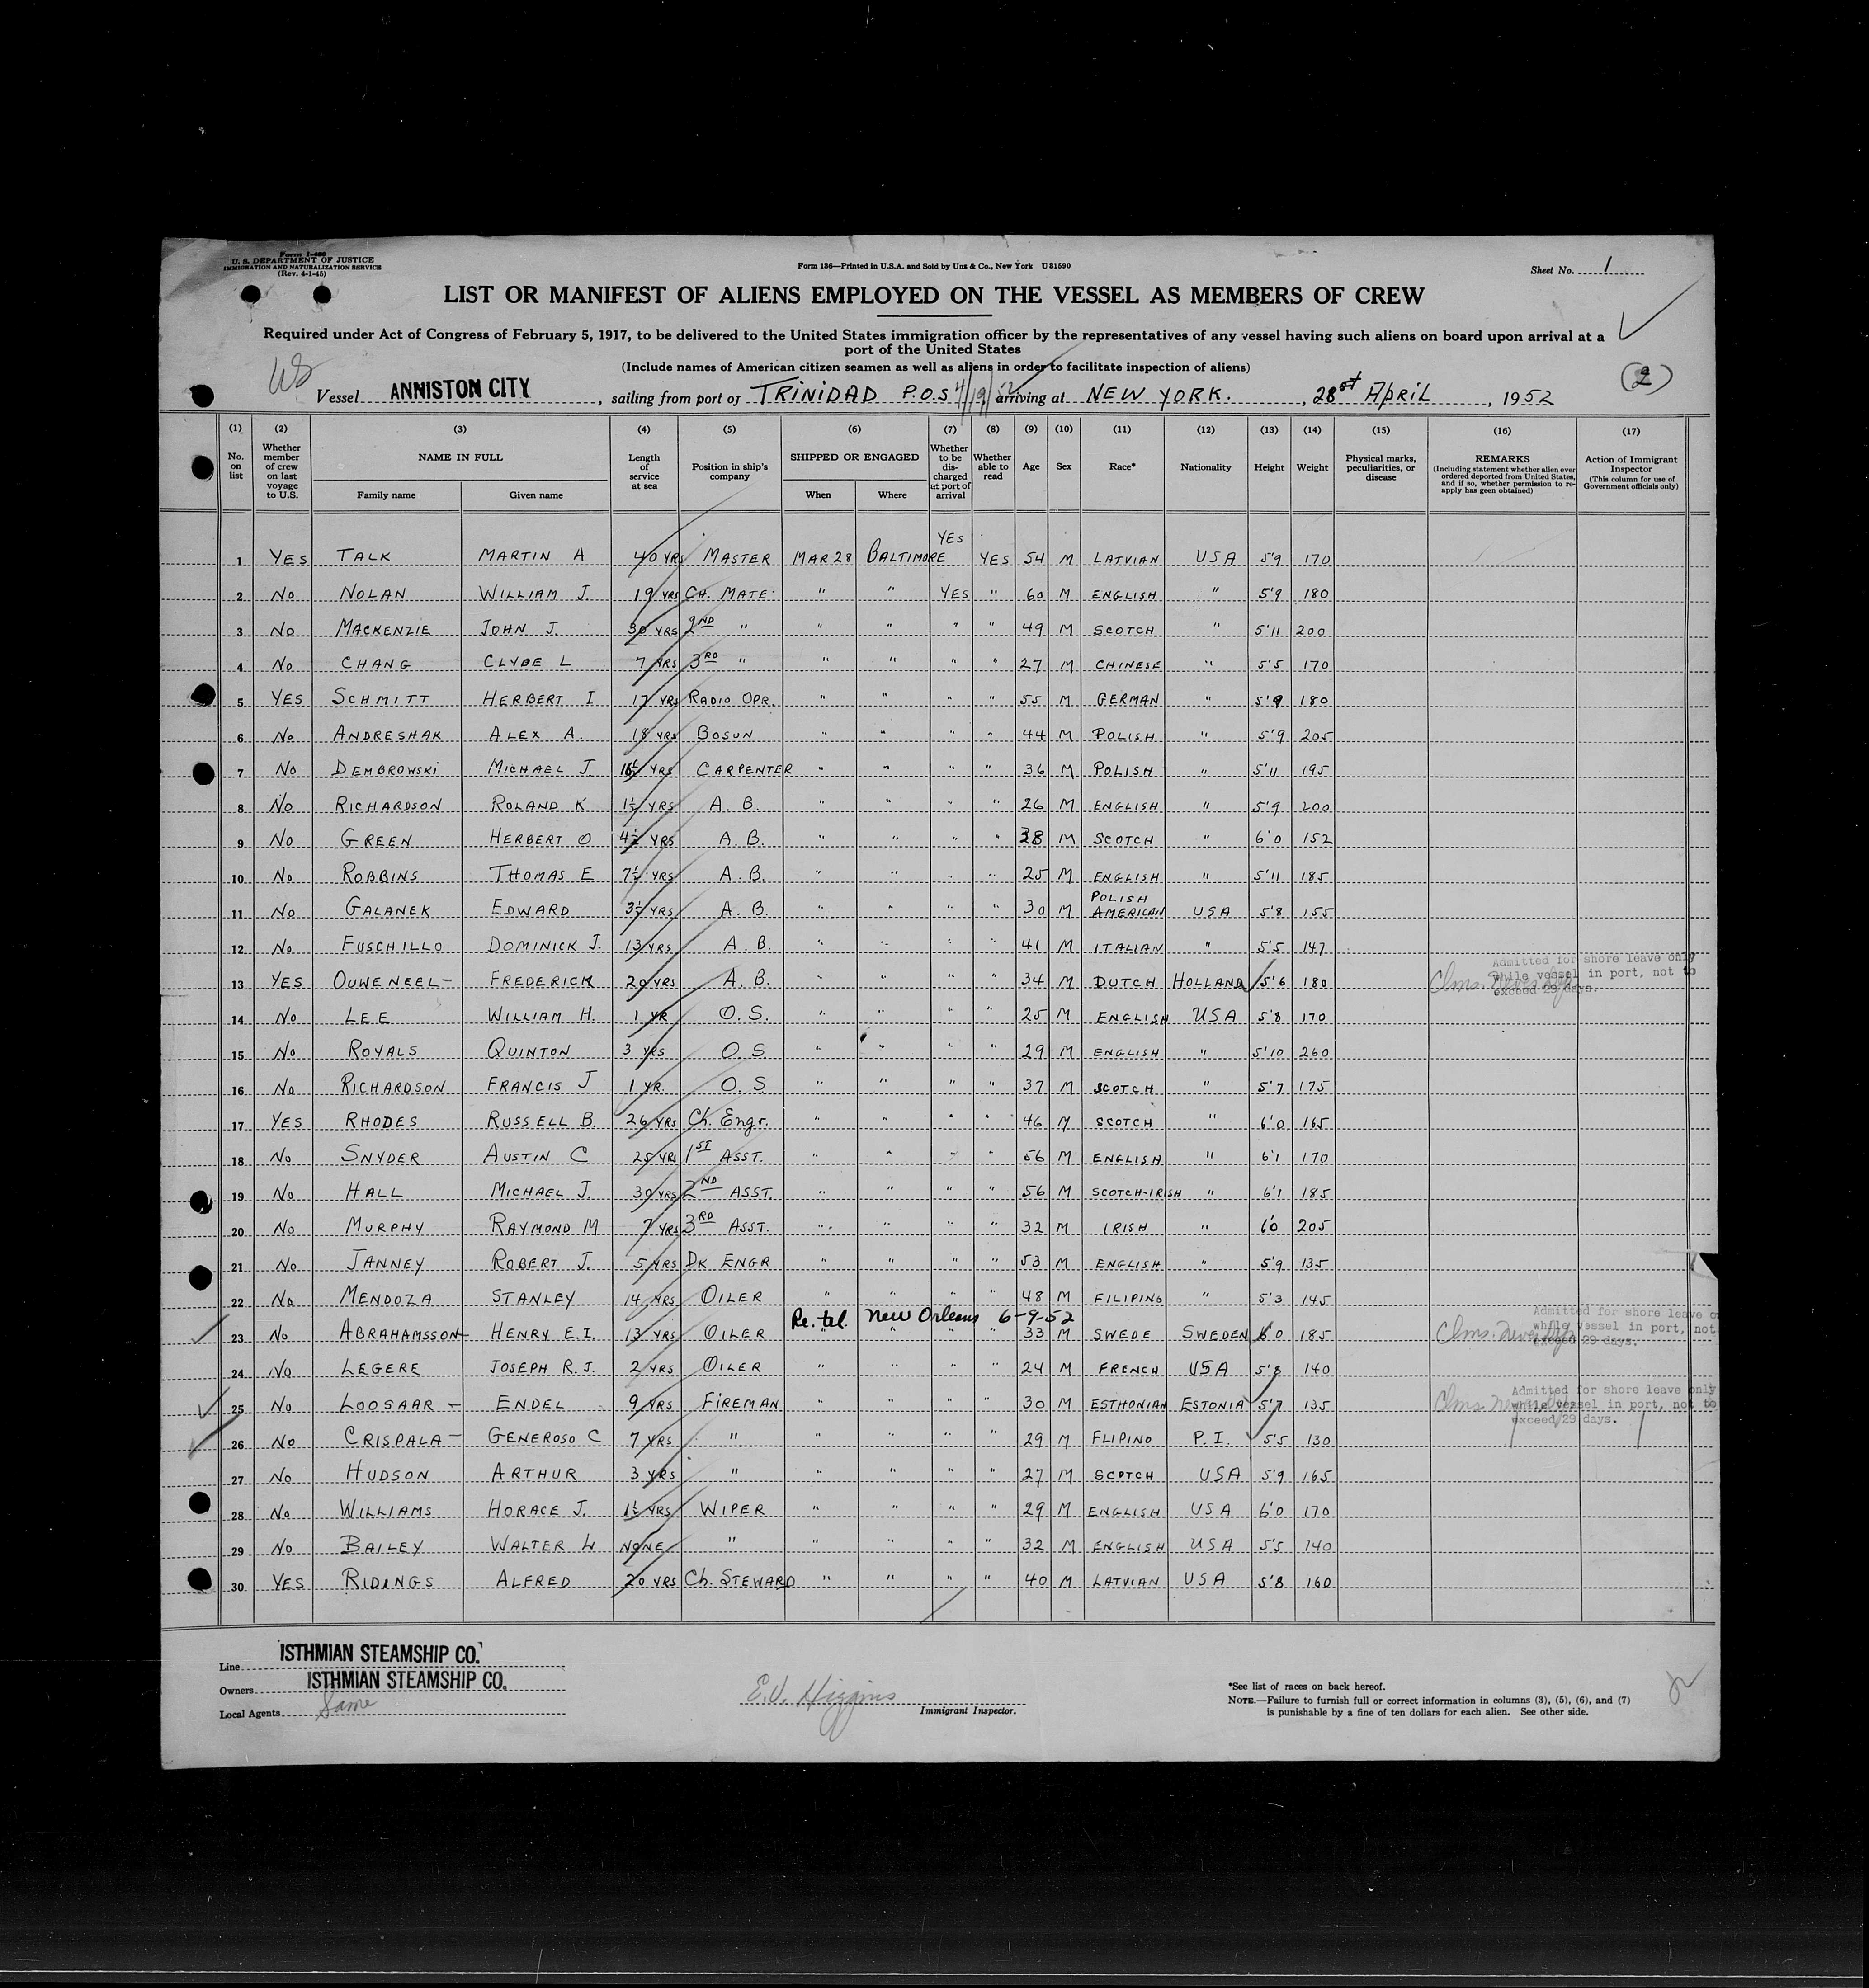 Form I-480
U. S. DEPARTMENT OF JUSTICE
IMMIGRATION AND NATURALIZATION SERVICE
(Rev. 4-1-45)
Form 136—Printed in U.S.A. and Sold by Unz & Co., New York U 31590
Sheet No. 1
LIST OR MANIFEST OF ALIENS EMPLOYED ON THE VESSEL AS MEMBERS OF CREW
Required under Act of Congress of February 5, 1917, to be delivered to the United States immigration officer by the representatives of any vessel having such aliens on board upon arrival at a
port of the United States
(Include names of American citizen seamen as well as aliens in order to facilitate inspection of aliens)
(2)
US
Vessel ANNISTON CITY, sailing from port of TRINIDAD P.O.S 4/19/52 arriving at NEW YORK., 28st April, 1952
(1) (2) (3) (4) (5) (6) (7) (8) (9) (10) (11) (12) (13) (14) (15) (16) (17)
No. on list
Whether member of crew on last voyage to U.S.
NAME IN FULL
Family name
Given name
Length of service at sea
Position in ship's company
SHIPPED OR ENGAGED
When
Where
Whether to be discharged at port of arrival
Whether able to read
Age
Sex
Race*
Nationality
Height
Weight
Physical marks, peculiarities, or disease
REMARKS
(Including statement whether alien ever ordered deported from United States, and if so, whether permission to re-apply has geen obtained)
Action of Immigrant Inspector
(This column for use of Government officials only)
1 YES TALK MARTIN A 40 YRS MASTER MAR 28 BALTIMORE YES YES 54 M LATVIAN USA 5'9 170
2 No NOLAN WILLIAM J. 19 YRS CH. MATE " " YES " 60 M ENGLISH " 5'9 180
3 No MACKENZIE JOHN J. 30 YRS 2ND " " " " " 49 M SCOTCH " 5'11 200
4 No CHANG CLYDE L 7 YRS 3RD " " " " " 27 M CHINESE " 5'5 170
5 YES SCHMITT HERBERT I 17 YRS RADIO OPR. " " " " 55 M GERMAN " 5'9 180
6 No ANDRESHAK ALEX A. 18 YRS BOSUN " " " " 44 M POLISH " 5'9 205
7 No DEMBROWSKI MICHAEL J YRS CARPENTER " " " " 36 M POLISH " 5'11 195
8 No RICHARDSON ROLAND K 1½ YRS A. B. " " " " 26 M ENGLISH " 5'9 200
9 No GREEN HERBERT O 4½ YRS A. B. " " " " 38 M SCOTCH " 6'0 152
10 No ROBBINS THOMAS E 7½ YRS A. B. " " " " 25 M ENGLISH " 5'11 185
11 No GALANEK EDWARD 3½ YRS A. B. " " " " 30 M POLISH AMERICAN USA 5'8 155
12 No FUSCHILLO DOMINICK J. 13 YRS A. B. " " " " 41 M ITALIAN " 5'5 147
13 YES OUWENEEL— FREDERICK 20 YRS A. B. " " " " 34 M DUTCH HOLLAND 5'6 180 Clms. Admitted for shore leave only while vessel in port, not to exceed 29 days.
14 No LEE WILLIAM H. 1 YR O. S. " " " " 25 M ENGLISH USA 5'8 170
15 No ROYALS QUINTON 3 YRS O. S. " " " " 29 M ENGLISH " 5'10 260
16 No RICHARDSON FRANCIS J 1 YR. O. S " " " " 37 M SCOTCH " 5'7 175
17 YES RHODES RUSSELL B. 26 YRS Ch. Engr. " " " " 46 M SCOTCH " 6'0 165
18 No SNYDER AUSTIN C 25 YRS 1ST ASST. " " " " 56 M ENGLISH " 6'1 170
19 No HALL MICHAEL J. 30 YRS 2ND ASST. " " " " 56 M SCOTCH-IRISH " 6'1 185
20 No MURPHY RAYMOND M 7 YRS 3RD ASST. " " " " 32 M IRISH " 6'0 205
21 No JANNEY ROBERT J. 5 YRS DK ENGR " " " " 53 M ENGLISH " 5'9 135
22 No MENDOZA STANLEY 14 YRS OILER " " " " 48 M FILIPINO " 5'3 145
Re. tel. New Orleans 6-9-52
23 No ABRAHAMSSON— HENRY E.I. 13 YRS OILER " " " " 33 M SWEDE SWEDEN 6'0 185 Clms. never dep. Admitted for shore leave o while vessel in port, not exceed 29 days.
24 No LEGERE JOSEPH R.J. 2 YRS OILER " " " " 24 M FRENCH USA 5'8 140
25 No LOOSAAR — ENDEL 9 YRS FIREMAN " " " " 30 M ESTHONIAN ESTONIA 5'7 135 Clms never dep Admitted for shore leave only while vessel in port, not to exceed 29 days.
26 No CRISPALA— GENEROSO C 7 YRS " " " " " 29 M FLIPINO P.I. 5'5 130
27 No HUDSON ARTHUR 3 YRS " " " " " 27 M SCOTCH USA 5'9 165
28 No WILLIAMS HORACE J. 1½ YRS WIPER " " " " 29 M ENGLISH USA 6'0 170
29 No BAILEY WALTER W NONE " " " " " 32 M ENGLISH USA 5'5 140
30 YES RIDINGS ALFRED 20 YRS Ch. STEWARD " " " " 40 M LATVIAN USA 5'8 160
Line ISTHMIAN STEAMSHIP CO.
Owners ISTHMIAN STEAMSHIP CO.
Local Agents Same
E.J. Higgins
Immigrant Inspector.
*See list of races on back hereof.
NOTE.—Failure to furnish full or correct information in columns (3), (5), (6), and (7)
is punishable by a fine of ten dollars for each alien. See other side.